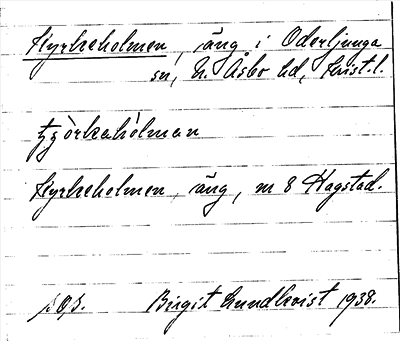 Kyrkeholmen, äng i Oderljunga
sn, N. Åsbo hd, Krist. l.
tyòrkahòlman
Kyrkeholmen, äng, m 8 Hagstad.
Birgit Lundkvist 1938.